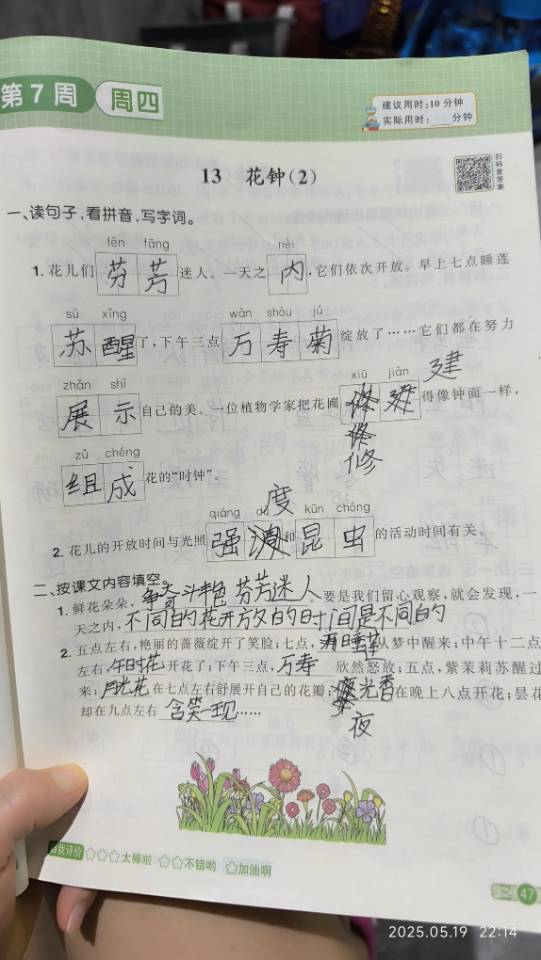 第7周 周四
建议用时:10分钟
实际用时: 分钟
13 花钟(2)
扫码查答案
一、读句子,看拼音,写字词。
fēn fāng nèi
1.花儿们芬芳迷人。一天之内,它们依次开放。早上七点睡莲
sū xǐng wàn shòu jú
苏醒了,下午三点万寿菊绽放了……它们都在努力
建
zhǎn shì xiū jiàn
展示自己的美。一位植物学家把花圃得像钟面一样,
修
zǔ chéng
组成花的“时钟”。
度
qiáng dù kūn chóng
2.花儿的开放时间与光照强和昆虫的活动时间有关。
二、按课文内容填空。
1.鲜花朵朵,争奇斗艳 芬芳迷人要是我们留心观察,就会发现,一
天之内,不同的花开放的时间是不同的
2.五点左右,艳丽的蔷薇绽开了笑脸;七点,睡莲从梦中醒来;中午十二点
左右,午时花开花了;下午三点,万寿 欣然怒放;五点,紫茉莉苏醒过
来;月光花在七点左右舒展开自己的花瓣;光香在晚上八点开花;昙花
却在九点左右含笑一现……
夜
自我评价 ☆☆☆太棒啦 ☆☆不错哟 ☆加油啊
47
2025.05.19 22:14